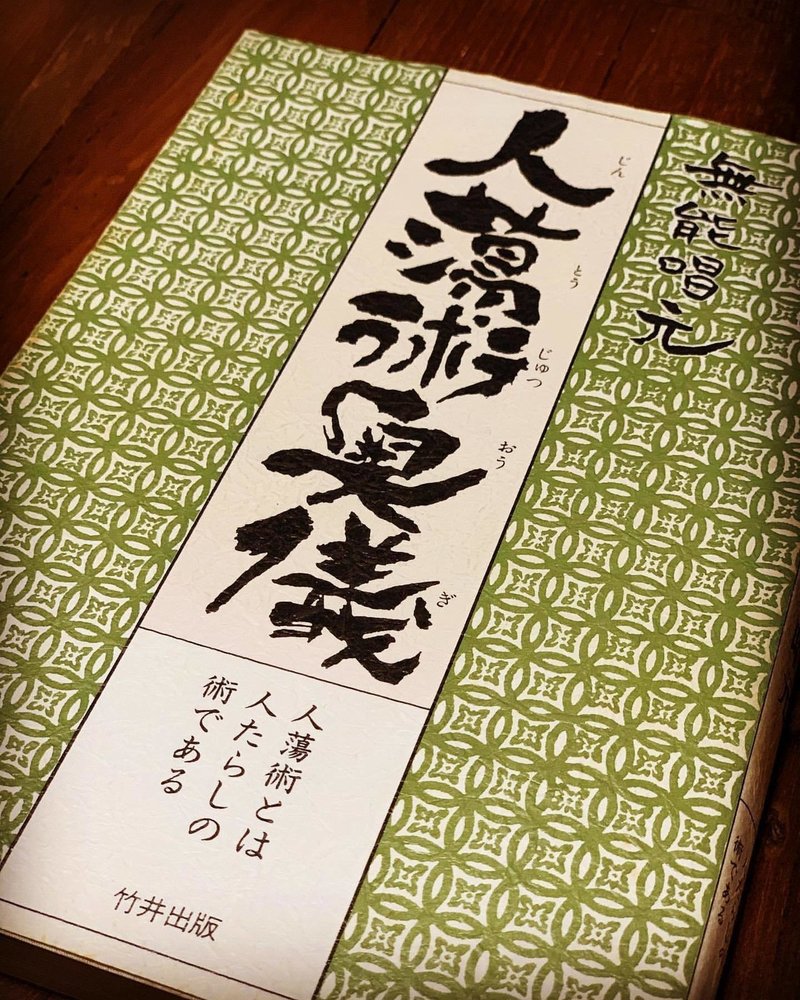 無能唱元
人蕩術奥儀
じん
とう
じゅつ
おう
ぎ
人蕩術とは
人たらしの
術である
竹井出版